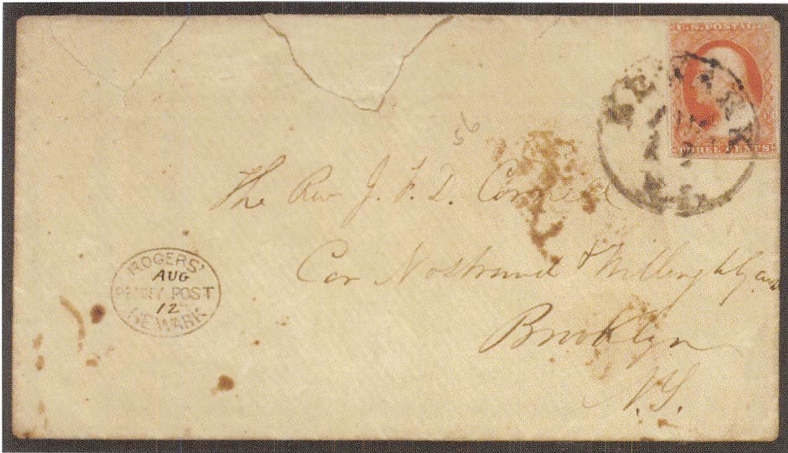 U.S. POSTAGE
THREE CENTS
NEWARK
N.J.
56
The Rev J. F. D.
Cor Nostrand & Willoughby
Brooklyn
N.Y.
ROGERS'
AUG
PENNY POST
12
NEWARK